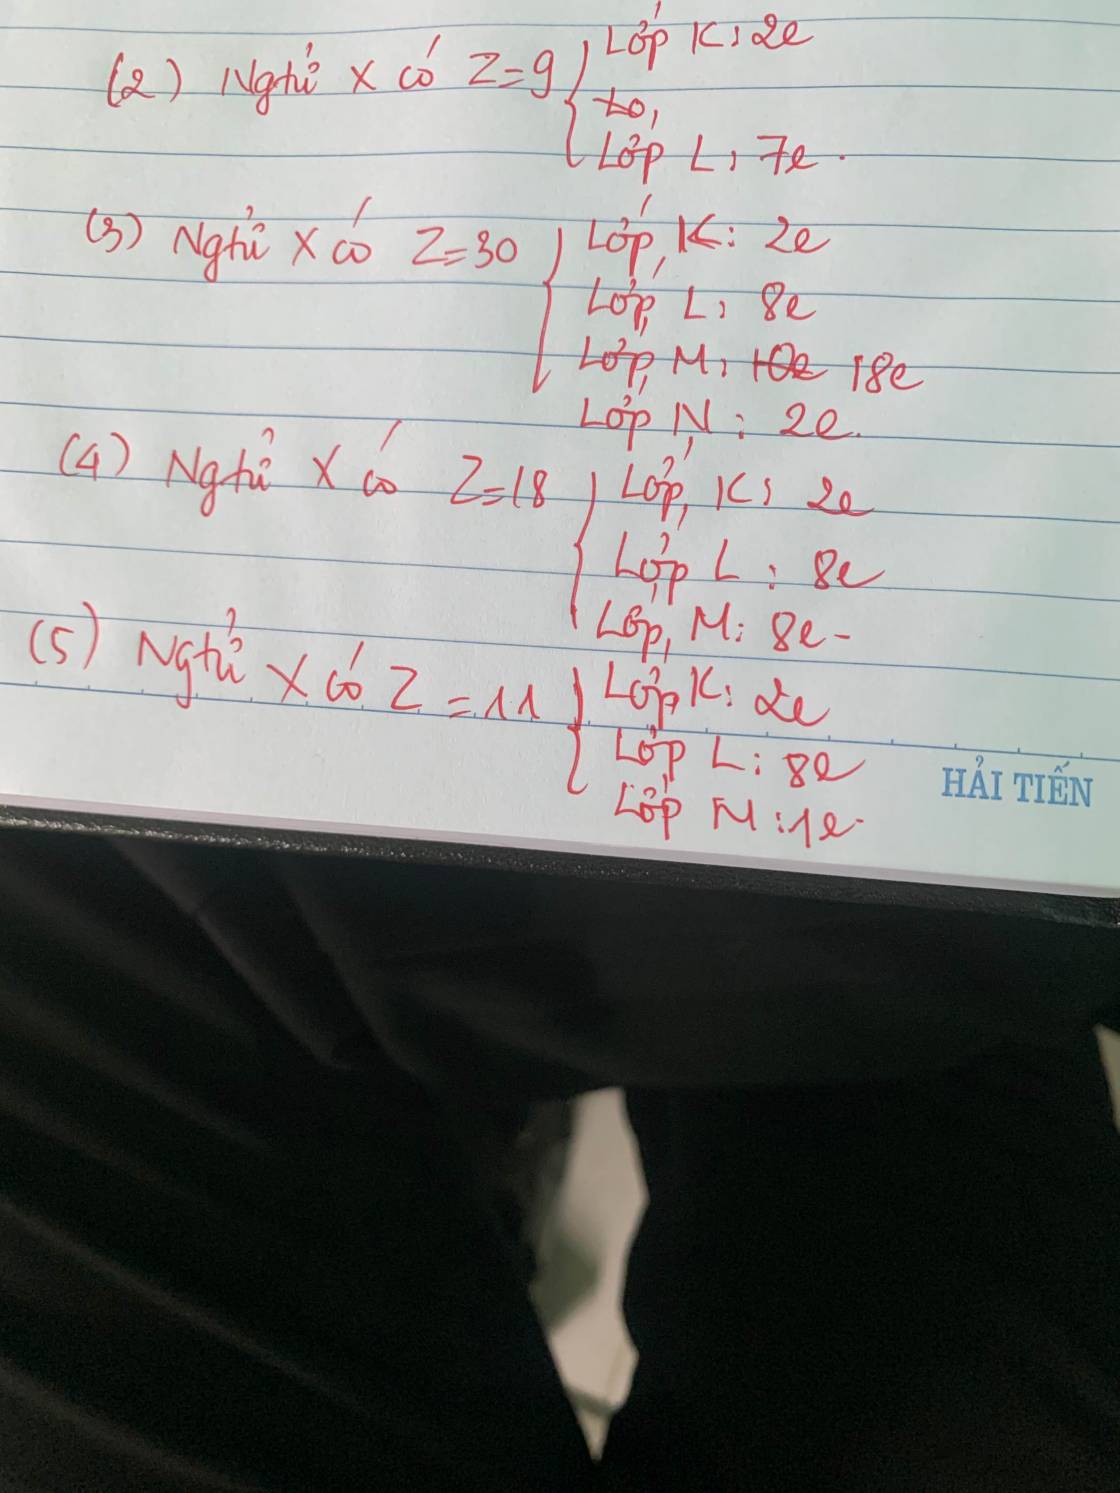 Lớp K: 2e
(2) Ngtử X có Z=9
Lớp L: 7e.
(3) Ngtử X có Z=30 Lớp K: 2e
Lớp L: 8e
Lớp M: 10e 18e
Lớp N: 2e.
(4) Ngtử X có Z=18 Lớp K: 2e
Lớp L: 8e
Lớp M: 8e-
(5) Ngtử X có Z=11 Lớp K: 2e
Lớp L: 8e
Lớp M: 1e.
HẢI TIẾN